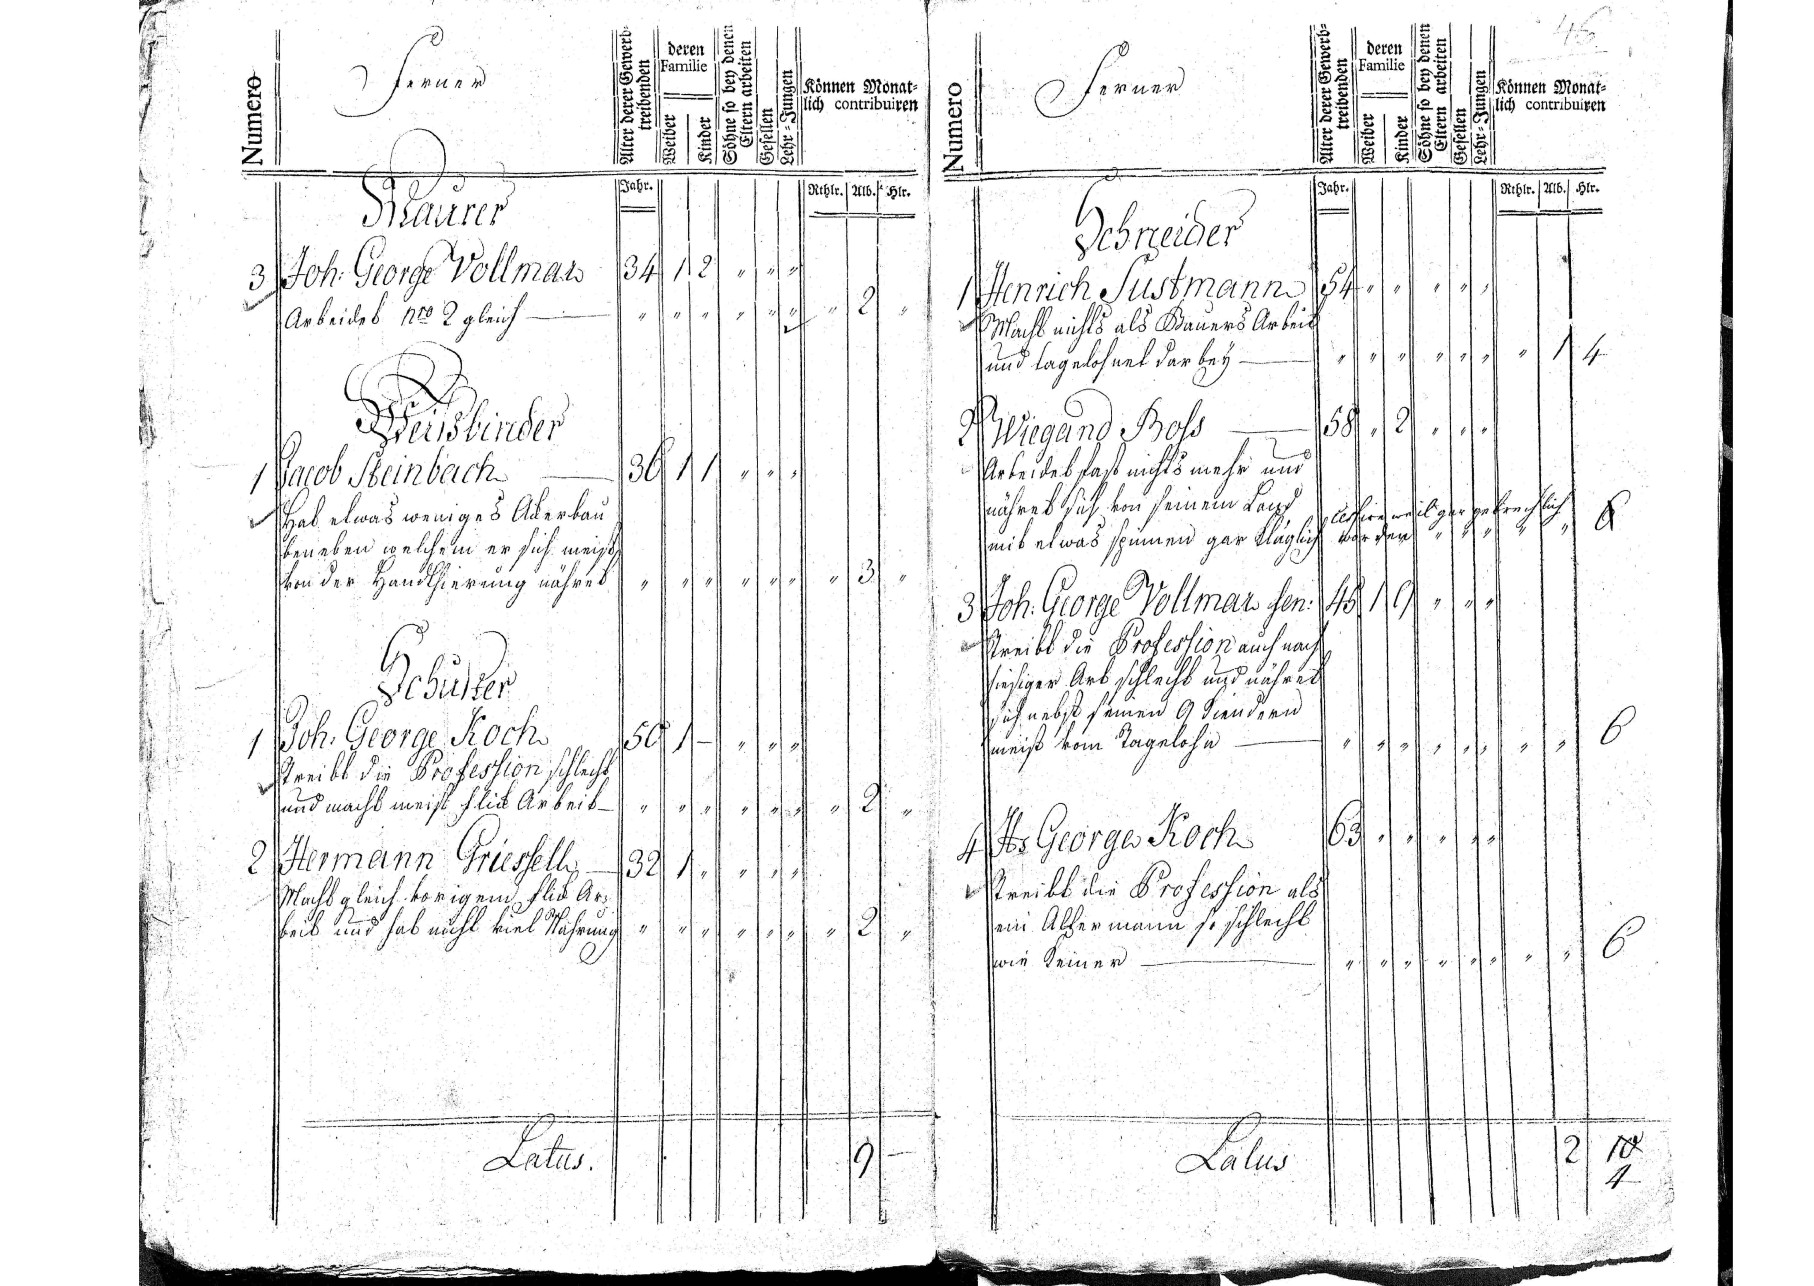 Numero
Ferner
Alter derer Gewerb-
treibenden
deren
Familie
Weiber
Kinder
Söhne so bey denen
Eltern arbeiten
Gesellen
Lehr-Jungen
Können Monat-
lich contribuiren
Jahr.
Rthlr. Alb. Hlr.
Maurer
3 Joh: George Vollmar 34 1 2 " " "
Arbeidet nro 2 gleich — " " " " " " " 2 "
Weisbinder
1 Jacob Steinbach — 36 1 1 " " "
Hat etwas weniges Ackerbau
beneben welchem er sich meist
von der Handthierung nähret " " " " " " " 3 "
Schuster
1 Joh: George Koch 50 1 – " " "
Treibt die Profession schlecht
und macht meist flick Arbeit – " " " " " " " 2 "
2 Hermann Griessell — 32 1 " " " "
Macht gleich vorigem flick Ar-
beit und hat nicht viel Nahrung " " " " " " " 2 "
Latus. 9 —
46
Numero
Ferner
Alter derer Gewerb-
treibenden
deren
Familie
Weiber
Kinder
Söhne so bey denen
Eltern arbeiten
Gesellen
Lehr-Jungen
Können Monat-
lich contribuiren
Jahr.
Rthlr. Alb. Hlr.
Schneider
1 Henrich Sustmann 54 " " " " "
Macht nichts als Bauers Arbeit
und tagelohnet darbey — " " " " " " " 1 4
2 Wiegand Ross — 58 " 2 " " "
Arbeidet fast nichts mehr und
nähret sich von seinem Land
weil gar gebrechlich
mit etwas spinnen gar kläglich worden " " " " " 6
3 Joh: George Vollmar sen: 48 1 9 " " "
Treibt die Profession auch nach
hiesiger Art schlecht und nähret
sich nebst seinen 9 Kiendern
meist vom Tagelohn — " " " " " " " " 6
4 Hs George Koch 63 " " " " "
Treibt die Profession als
ein Alter mann so schlecht
wie Keiner — " " " " " " " " 6
Latus 2 10
4